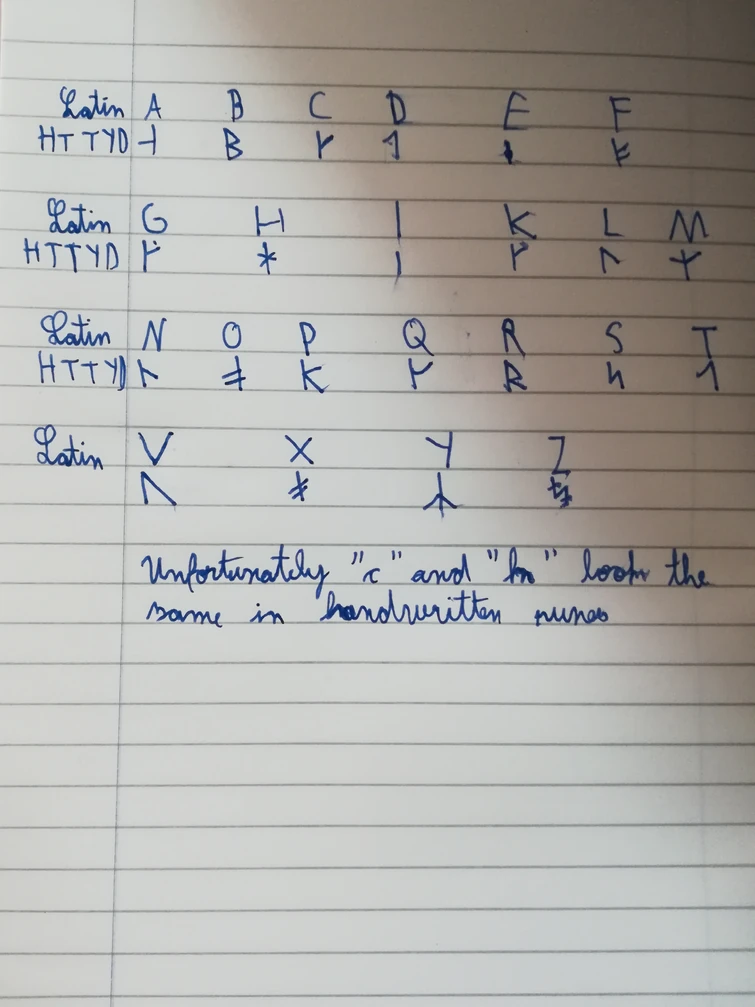 Latin A B C D E F
HTTYD ᛆ B ᚴ ᛑ ᚽ ᚡ
Latin G H I K L M
HTTYD ᚵ ᚼ ᛁ ᚴ ᛚ ᛉ
Latin N O P Q R S T
HTTYD ᚿ ᚯ K ᚴ R ᛋ ᛐ
Latin V X Y Z
ᚢ ᛡ ᛦ
Unfortunately "c" and "k" look the
same in handwritten runes